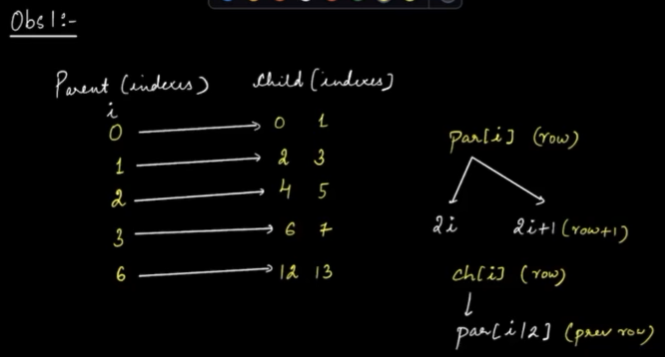 Obs1:-
Parent (indexes) Child [indexes]
i
0 → 0 1
1 → 2 3
2 → 4 5
3 → 6 7
6 → 12 13
par[i] (row)
2i 2i+1 (row+1)
ch[i] (row)
par[i/2] (prev row)